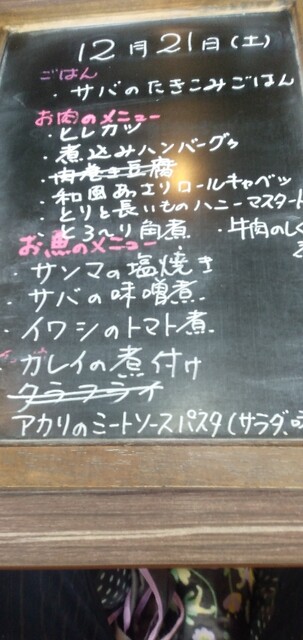 12月21日(土)
ごはん
・サバのたきこみごはん
お肉のメニュー
・ヒレカツ
・煮込みハンバーグ
・肉巻き豆腐
・和風あっさりロールキャベツ
・とりと長いものハニーマスタード
・とろ〜り角煮 ・牛肉のしぐ
お魚のメニュー
・サンマの塩焼き
・サバの味噌煮
・イワシのトマト煮
・ガレイの煮付け
・タラフライ
アカリのミートソースパスタ(サラダ、